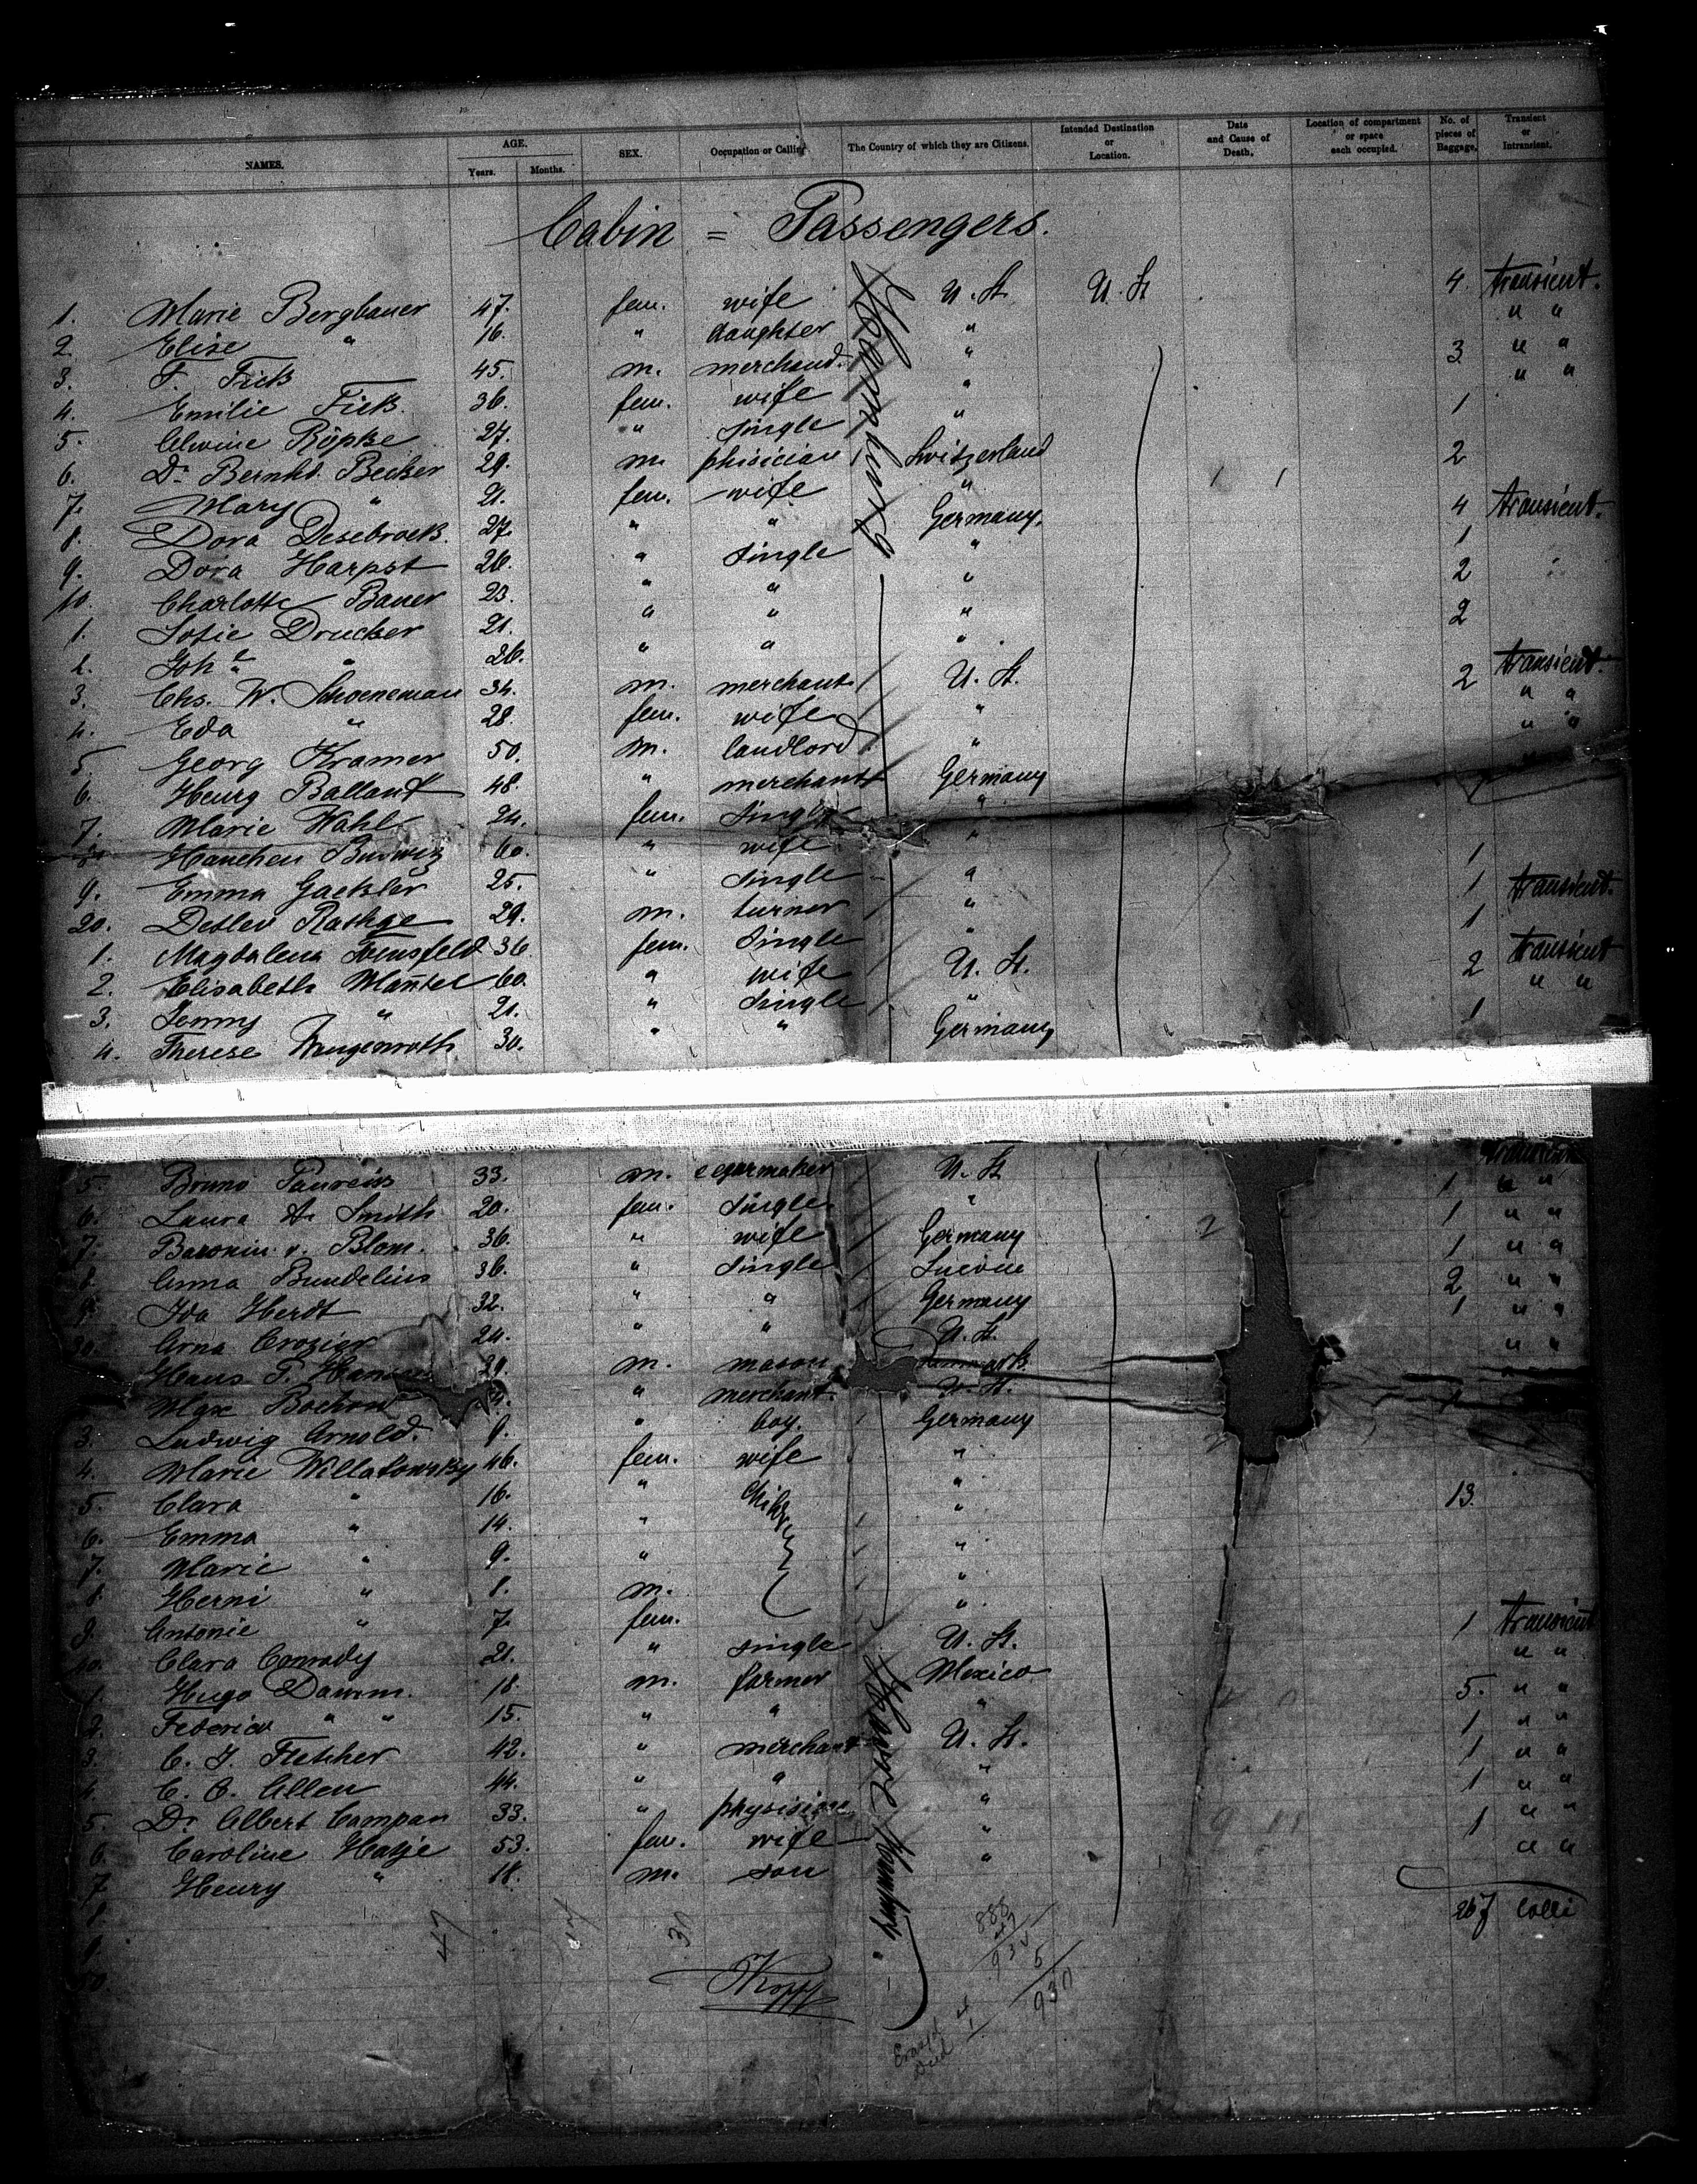 NAMES. AGE. Years. Months. SEX. Occupation or Calling The Country of which they are Citizens. Intended Destination or Location. Date and Cause of Death. Location of compartment or space each occupied. No. of pieces of Baggage. Transient or Intransient.
Cabin = Passengers.
1. Marie Bergbauer 47. fem. wife U. St. U. St 4. transient.
2. Elise " 16. " daughter " " "
3. F. Fick 45. m. merchand. " 3 " "
4. Emilie Fick. 36. fem. wife " " "
5. Alwine Röpke 27. " single " 1
6. Dr. Bernhd. Becker 29. m. phisician Switzerland 2
7. Mary " 21. fem. wife "
8. Dora Desebrock. 27. " " Germany. 4 transient.
9. Dora Harpst 26. " single " 1
10. Charlotte Bauer 23. " " " 2
1. Sofie Drucker 21. " " " 2
2. Johe " 26. " " "
3. Chs. W. Schoeneman 34. m. merchant U. St. 2 transient.
4. Eda " 28. fem. wife " " "
5. Georg Kramer 50. m. landlord " " "
6. Henry Ballauf 48. " merchant Germany
7. Marie Wahl 24. fem. single "
Hanchen 60. " wife " 1
9. Emma Gackler 25. " single " 1 transient.
20. Detlev Rathge 29. m. turner " 1
1. Magdalena 36 fem. single " transient
2. Elisabeth Mantel 60. " wife U. St. 2 " "
3. Jenny " 21. " single "
4. Therese 30. " " Germany 1
5. Bruno 33. m. U. St transient
6. Laura A. Smith 20. fem. single " 1 " "
7. Baronin v. Blom. 36. " wife Germany 1 " "
8. Anna Bundelius 36. " single 1 " "
9. Ida Herdt 32. " " Germany 2 " "
30. Arna Crozier 24. " " U. St. 1 " "
Hans P. m. mason Denmark " "
Max Bochow " merchant. U. St.
3. Ludwig Arnold. 9. " boy. Germany
4. Marie Willatowsky 46. fem. wife "
5. Clara " 16. " " 13.
6. Emma " 14. " "
7. Marie " 9. " "
8. Herni " 8. m. "
9. Antonie " 7. fem. "
40. Clara Conrady 21. " single U. St. 1 transient
1. Hugo Damm. 18. m. farmer Mexico " "
2. Federico " " 15. " " " 5. " "
3. C. J. Fletcher 42. " merchant U. St. 1 " "
4. C. C. Allen 44. " " " 1 " "
5. Dr. Albert Campan 33. " physician " 1 " "
6. Caroline Hatje 53. fem. wife " 1 " "
7. Henry " 18. m. son " " "
8. 267 Colli
9.
50.
Hamburg
47
885
47
932
5
930
Kopff
Died 1